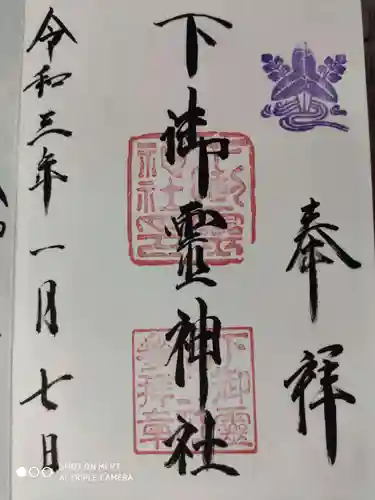 奉祥
下御靈神社
令和三年一月七日
SHOT ON MI 9T
AI TRIPLE CAMERA